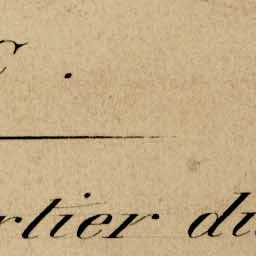 rtier du